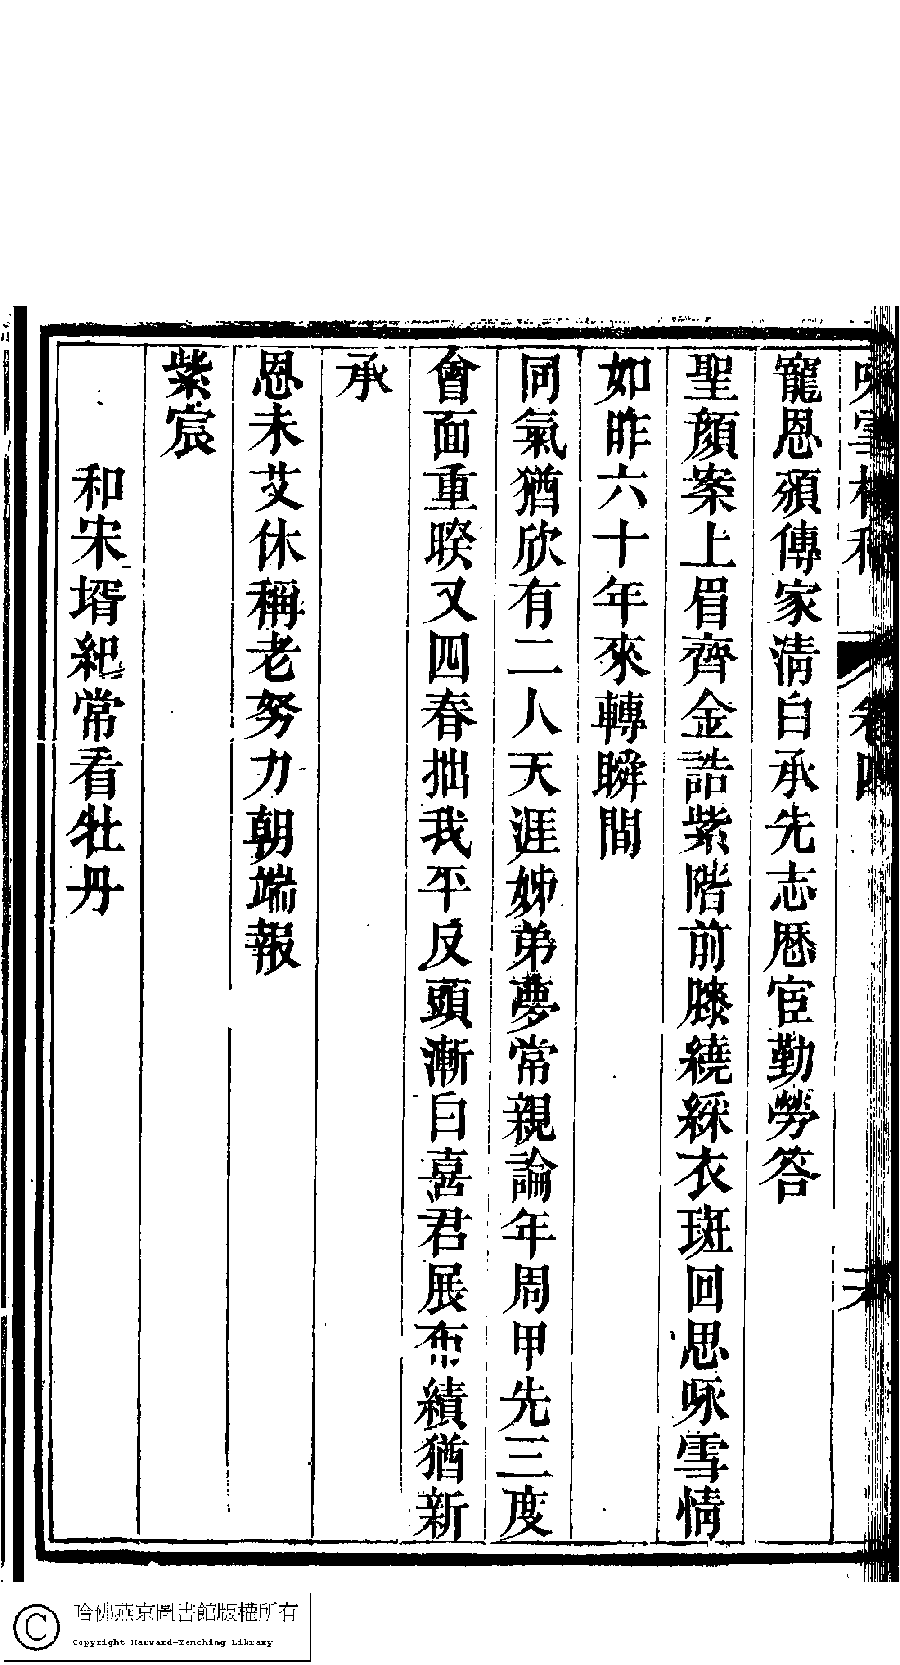 卷四
寵恩頒傳家清白承先志歷宦勤勞答
聖顔案上眉齊金誥紫階前膝繞綵衣斑回思咏雪情
如昨六十年來轉瞬間
同氣猶欣有二人天涯姊弟夢常親論年周甲先三度
會面重暌又四春拙我平反頭漸白喜君展布績猶新
承
恩未艾休稱老努力朝端報
紫宸
和宋壻紀常看牡丹
哈佛燕京圖書館版權所有
Copyright Harvard-Yenching Library